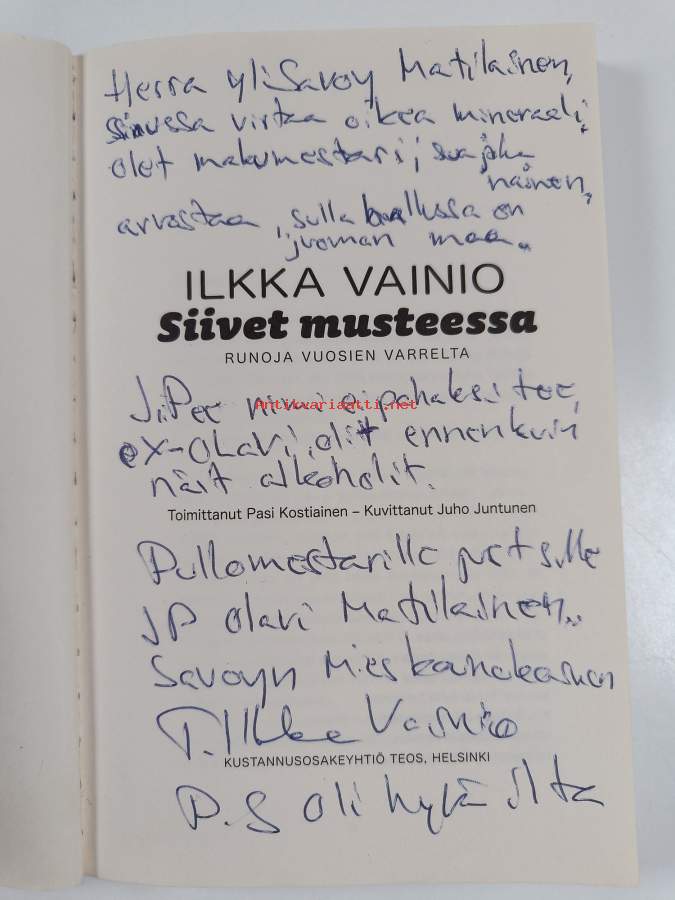 Herra yliSavoy Matilainen,
sinussa virtaa oikea mineraali,
olet makumestari, jota joka
nainen,
arvostaa, sulla hallussa on
juoman maa..
ILKKA VAINIO
Siivet musteessa
RUNOJA VUOSIEN VARRELTA
J.Pee nimi ei pahaksi tee,
Antikvariaatti.net
ex-OLavi olit ennenkuin
näit alkoholit.
Toimittanut Pasi Kostiainen – Kuvittanut Juho Juntunen
Pullomestarille just sulle
JP Olavi Matilainen..
Savoyn Mies
T. Ilkka Vainio
KUSTANNUSOSAKEYHTIÖ TEOS, HELSINKI
P.S Oli hyvä ilta